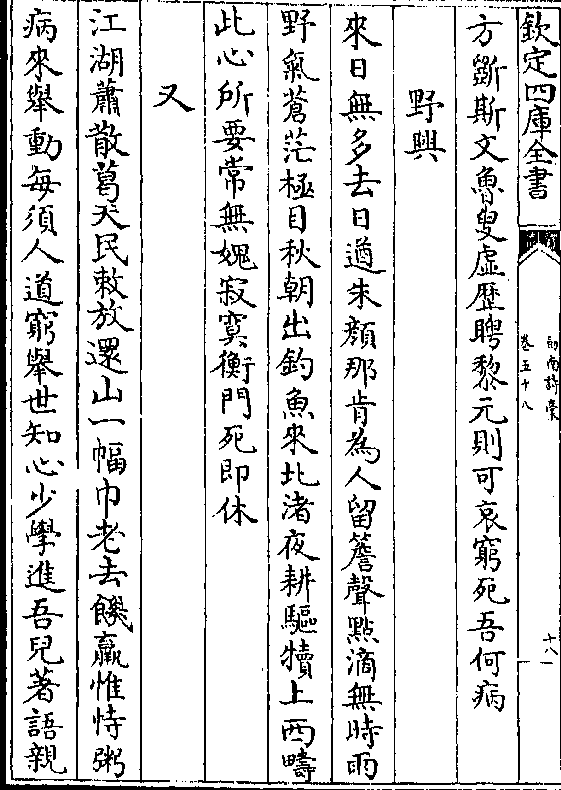 欽定四庫全書
劍南詩藁
卷五十八
十八
方斲斯文魯叟虛歴聘黎元則可哀窮死吾何病
野興
來日無多去日遒朱顔那肯為人留簷聲點滴無時雨
野氣蒼茫極目秋朝出釣魚來北渚夜耕驅犢上西疇
此心所要常無媿寂寞衡門死即休
又
江湖蕭散葛天民敕放還山一幅巾老去饑羸惟恃粥
病來舉動每須人道窮舉世知心少學進吾兒著語親